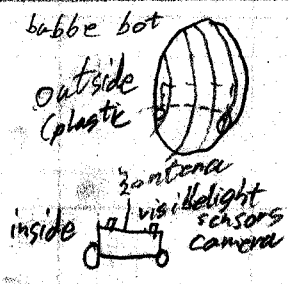 bubbe bot
outside
(plastic
antena
visiblelight
sensors
camera
inside